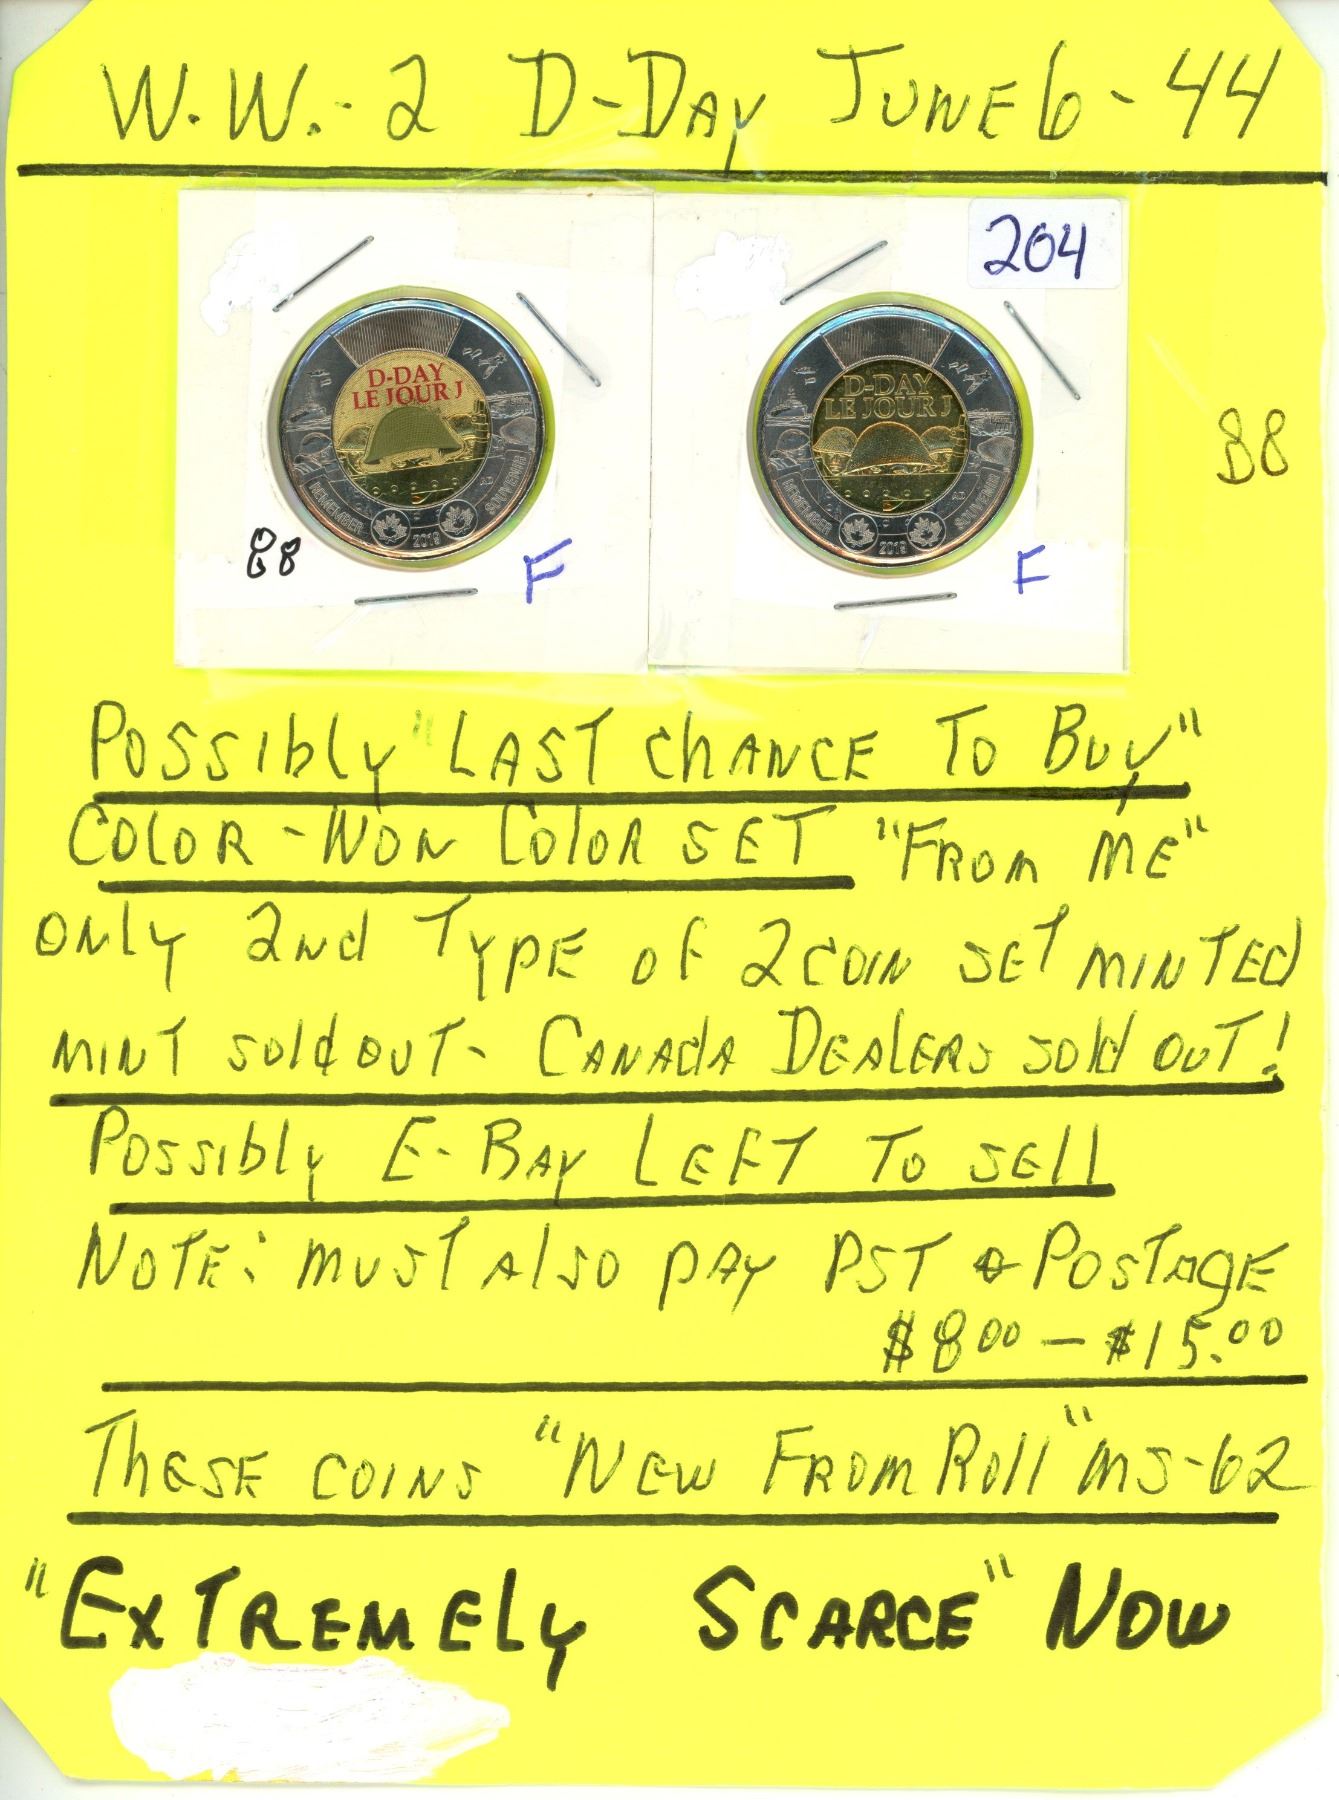 W.W.-2 D-DAY JUNE 6-44
204
D-DAY
LE JOUR J
REMEMBER
SOUVENIR
AD
2019
88
F
D-DAY
LE JOUR J
REMEMBER
SOUVENIR
AD
2019
F
B8
POSSIBLY "LAST CHANCE TO BUY"
COLOR-NON COLOR SET "FROM ME"
ONLY 2ND TYPE OF 2 COIN SET MINTED
MINT SOLD OUT- CANADA DEALERS SOLD OUT!
POSSIBLY E-BAY LEFT TO SELL
NOTE: MUST ALSO PAY PST & POSTAGE
$8.00 - $15.00
THESE COINS "NEW FROM ROLL" MS-62
"EXTREMELY SCARCE" NOW